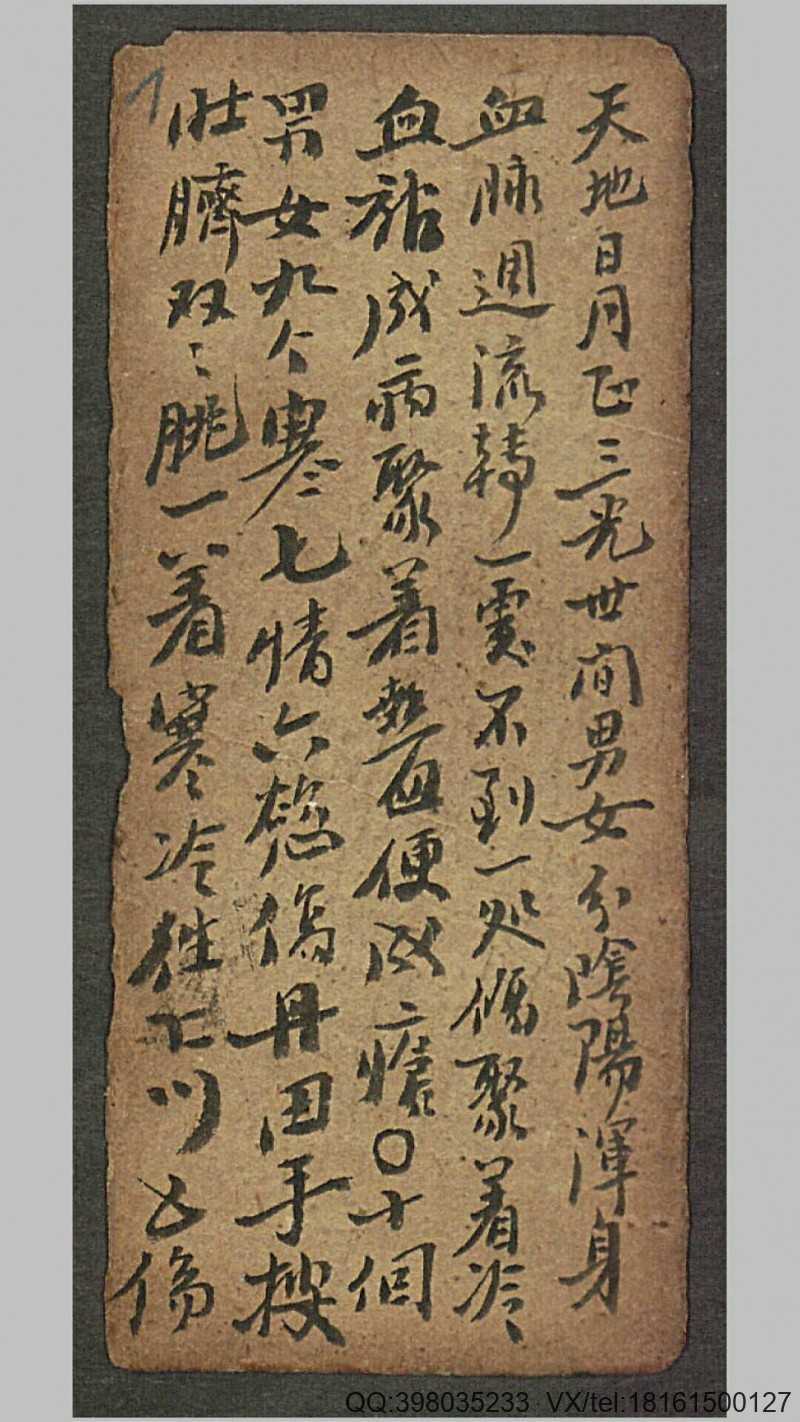 天地日月正三光世间男女分陰陽渾身
血脉週流轉一*不到一处傷聚着冷
血*成病聚着熱血便成瘡〇十個
男女九个寒七情六慾傷丹田手按
肚臍双〻跳一着寒冷往下川七傷
1
QQ:398035233 VX/tel:18161500127